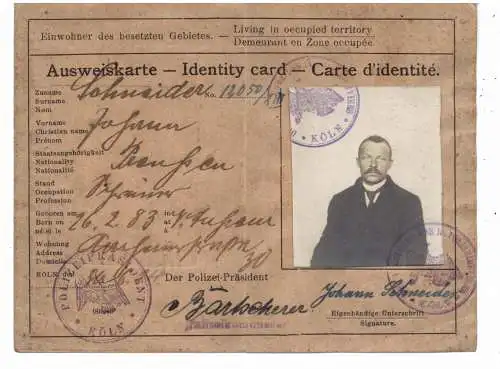 Einwohner des besetzten Gebietes. – Living in occupied territory
Demeurant en Zone occupée.
Ausweiskarte — Identity card — Carte d'identité.
Zuname
Surname
Nom
Schneider
No.
Vorname
Christian name
Prénom
Johann
Staatsangehörigkeit
Nationality
Nationalité
Preußen
Stand
Occupation
Profession
Schreiner
Geboren am
Born on
né si le
26.2.83
in
at
à
Wohnung
Address
Domicile
30
KÖLN den
POLIZEIPRÄSIDENT
KÖLN
Der Polizei-Präsident
Johann Schneider
Eigenhändige Unterschrift
Signature.
KÖLN